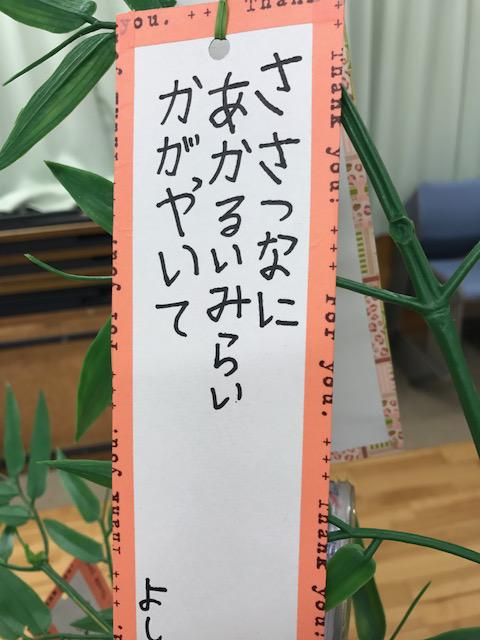 you. ++ Thank
ささつなに
あかるいみらい
かがやいて
よし
Thank you! +++ For you. +++ Thank you!
for you. +++